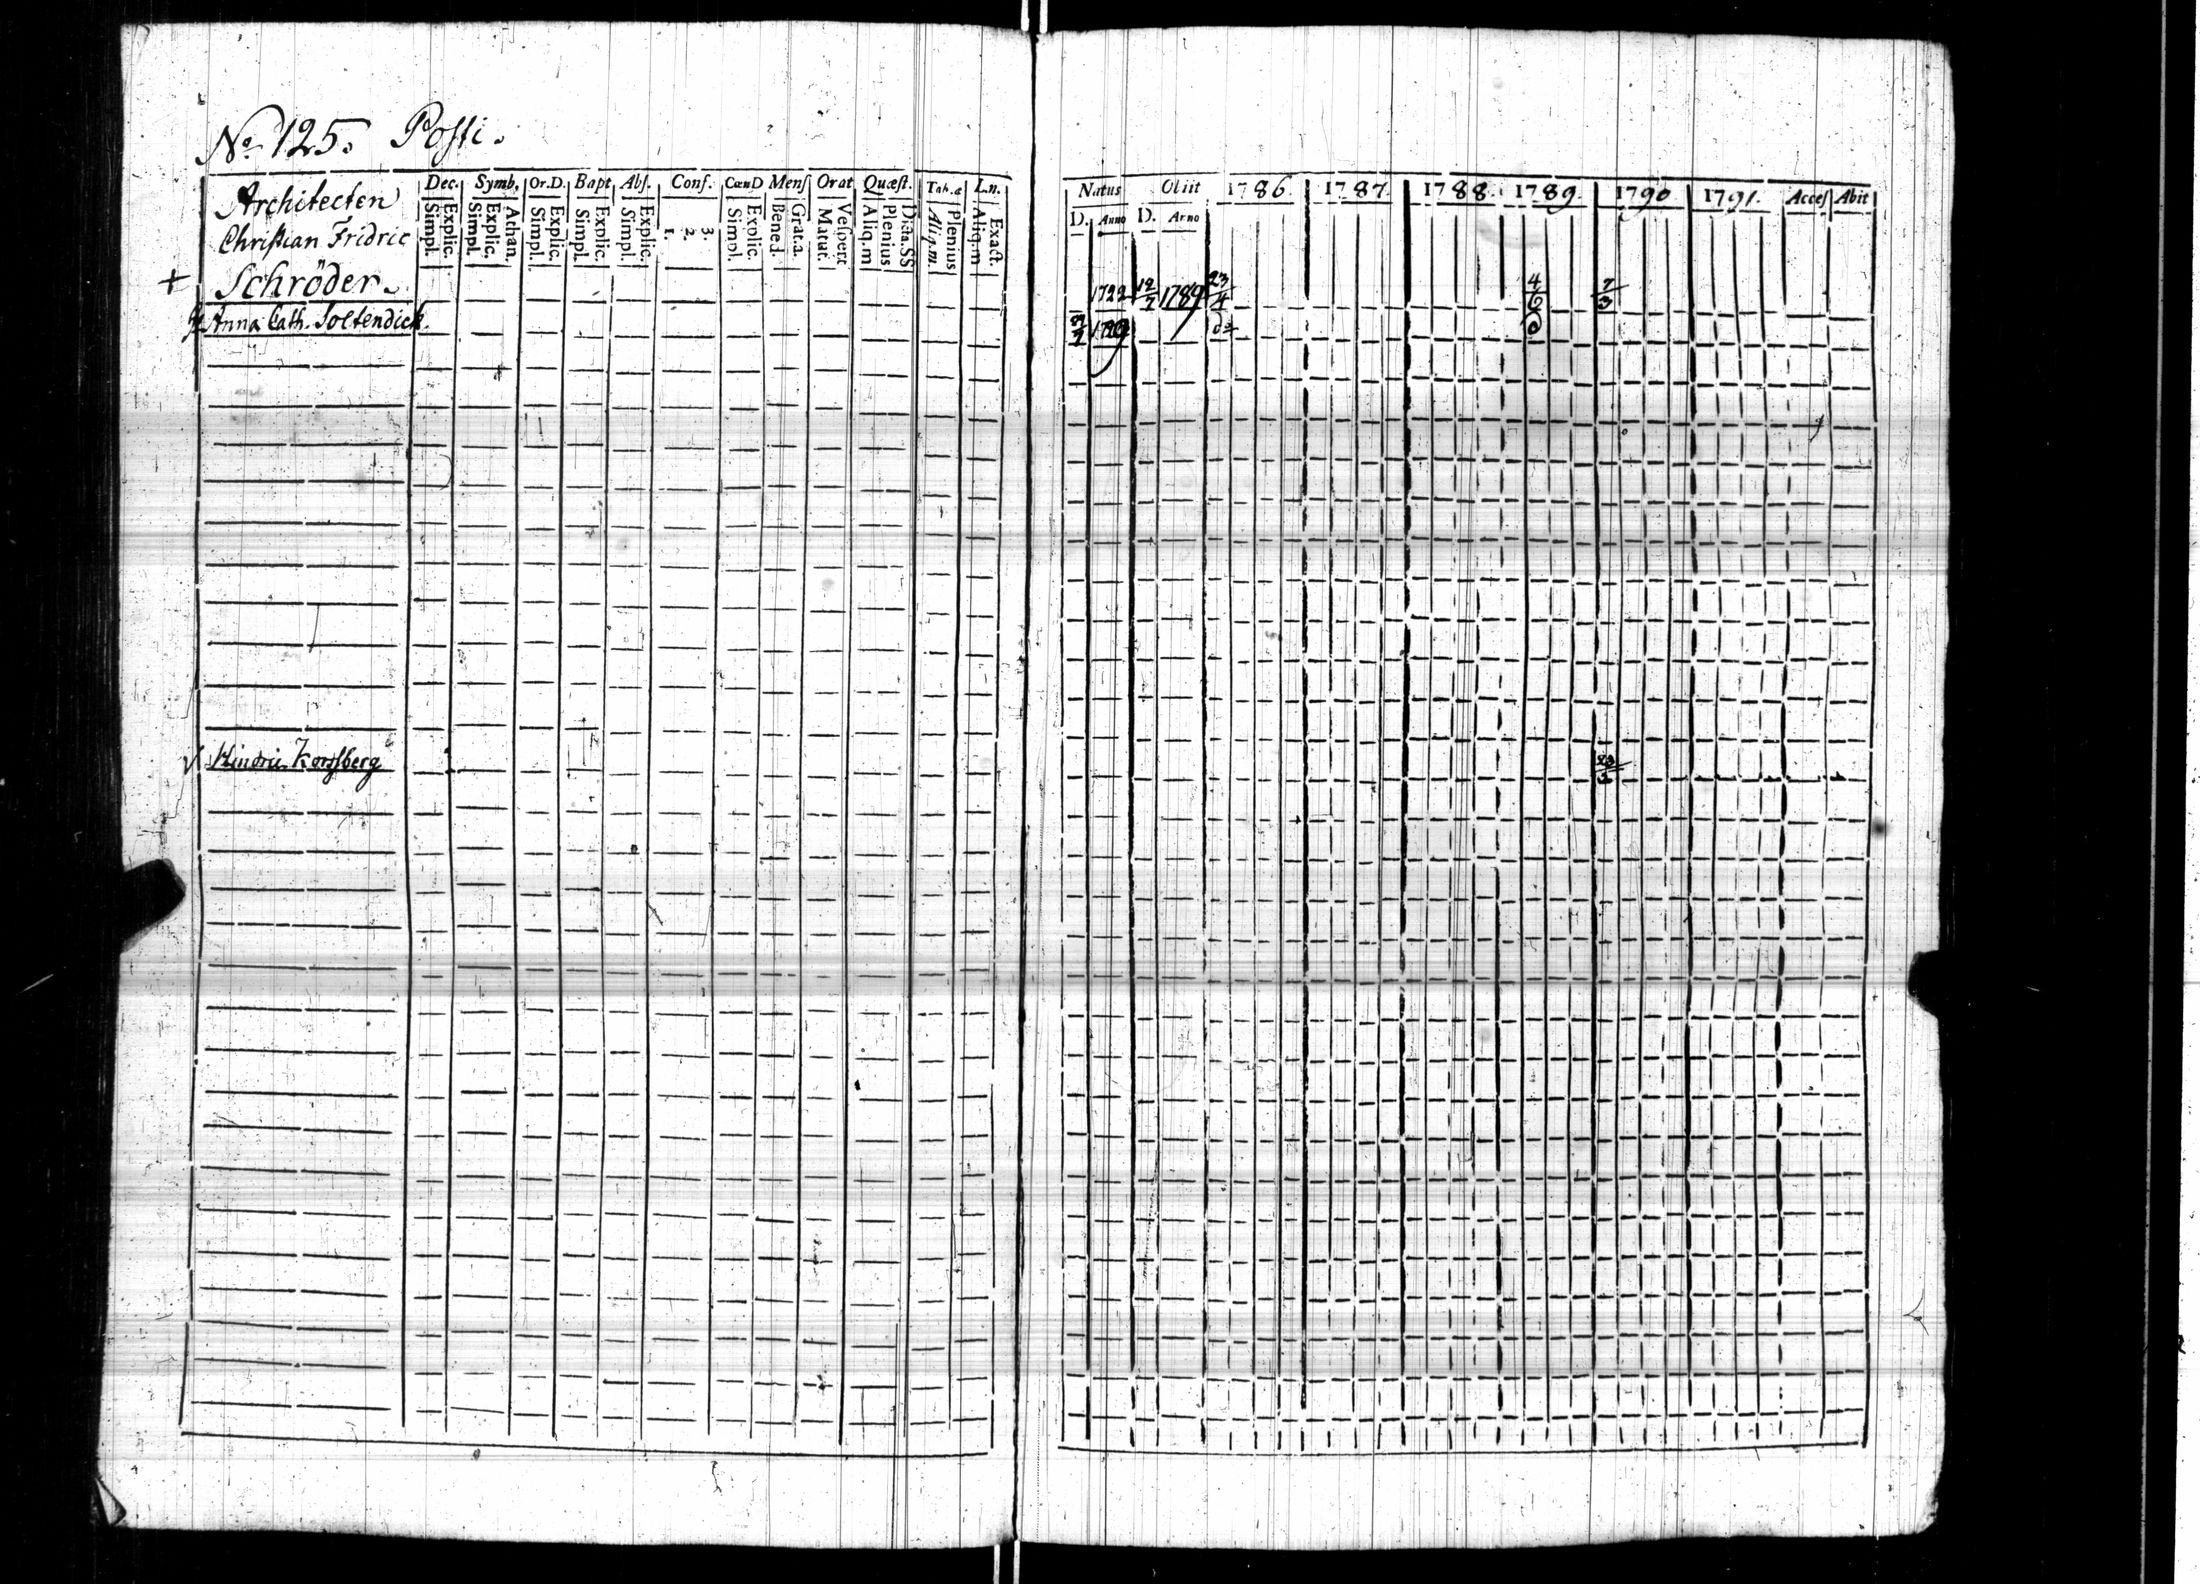 No 125. Posti.
Architecten
Christian Fridric
+ Schröder.
Anna Cath. Soltendick
Hindric
Dec. Symb. Or.D. Bapt Abs. Conf. CœnD Mens Orat Quæst. Tab.æ Ln.
Simpl. Explic. Simpl. Explic. Athan. Simpl. Explic. Simpl. Explic. Simpl. Explic. 1. 2. 3. Simpl. Explic. Bened. Grat.a. Matut. Vespert Aliq.m Plenius Dicta.SS Aliq.m. Plenius Aliq.m Exact.
Natus Obiit 1786. 1787. 1788. 1789. 1790 1791. Acces Abit
D. Anno D. Anno
1722 12/7 1789 23/4 4/6 7/3
do
23/3